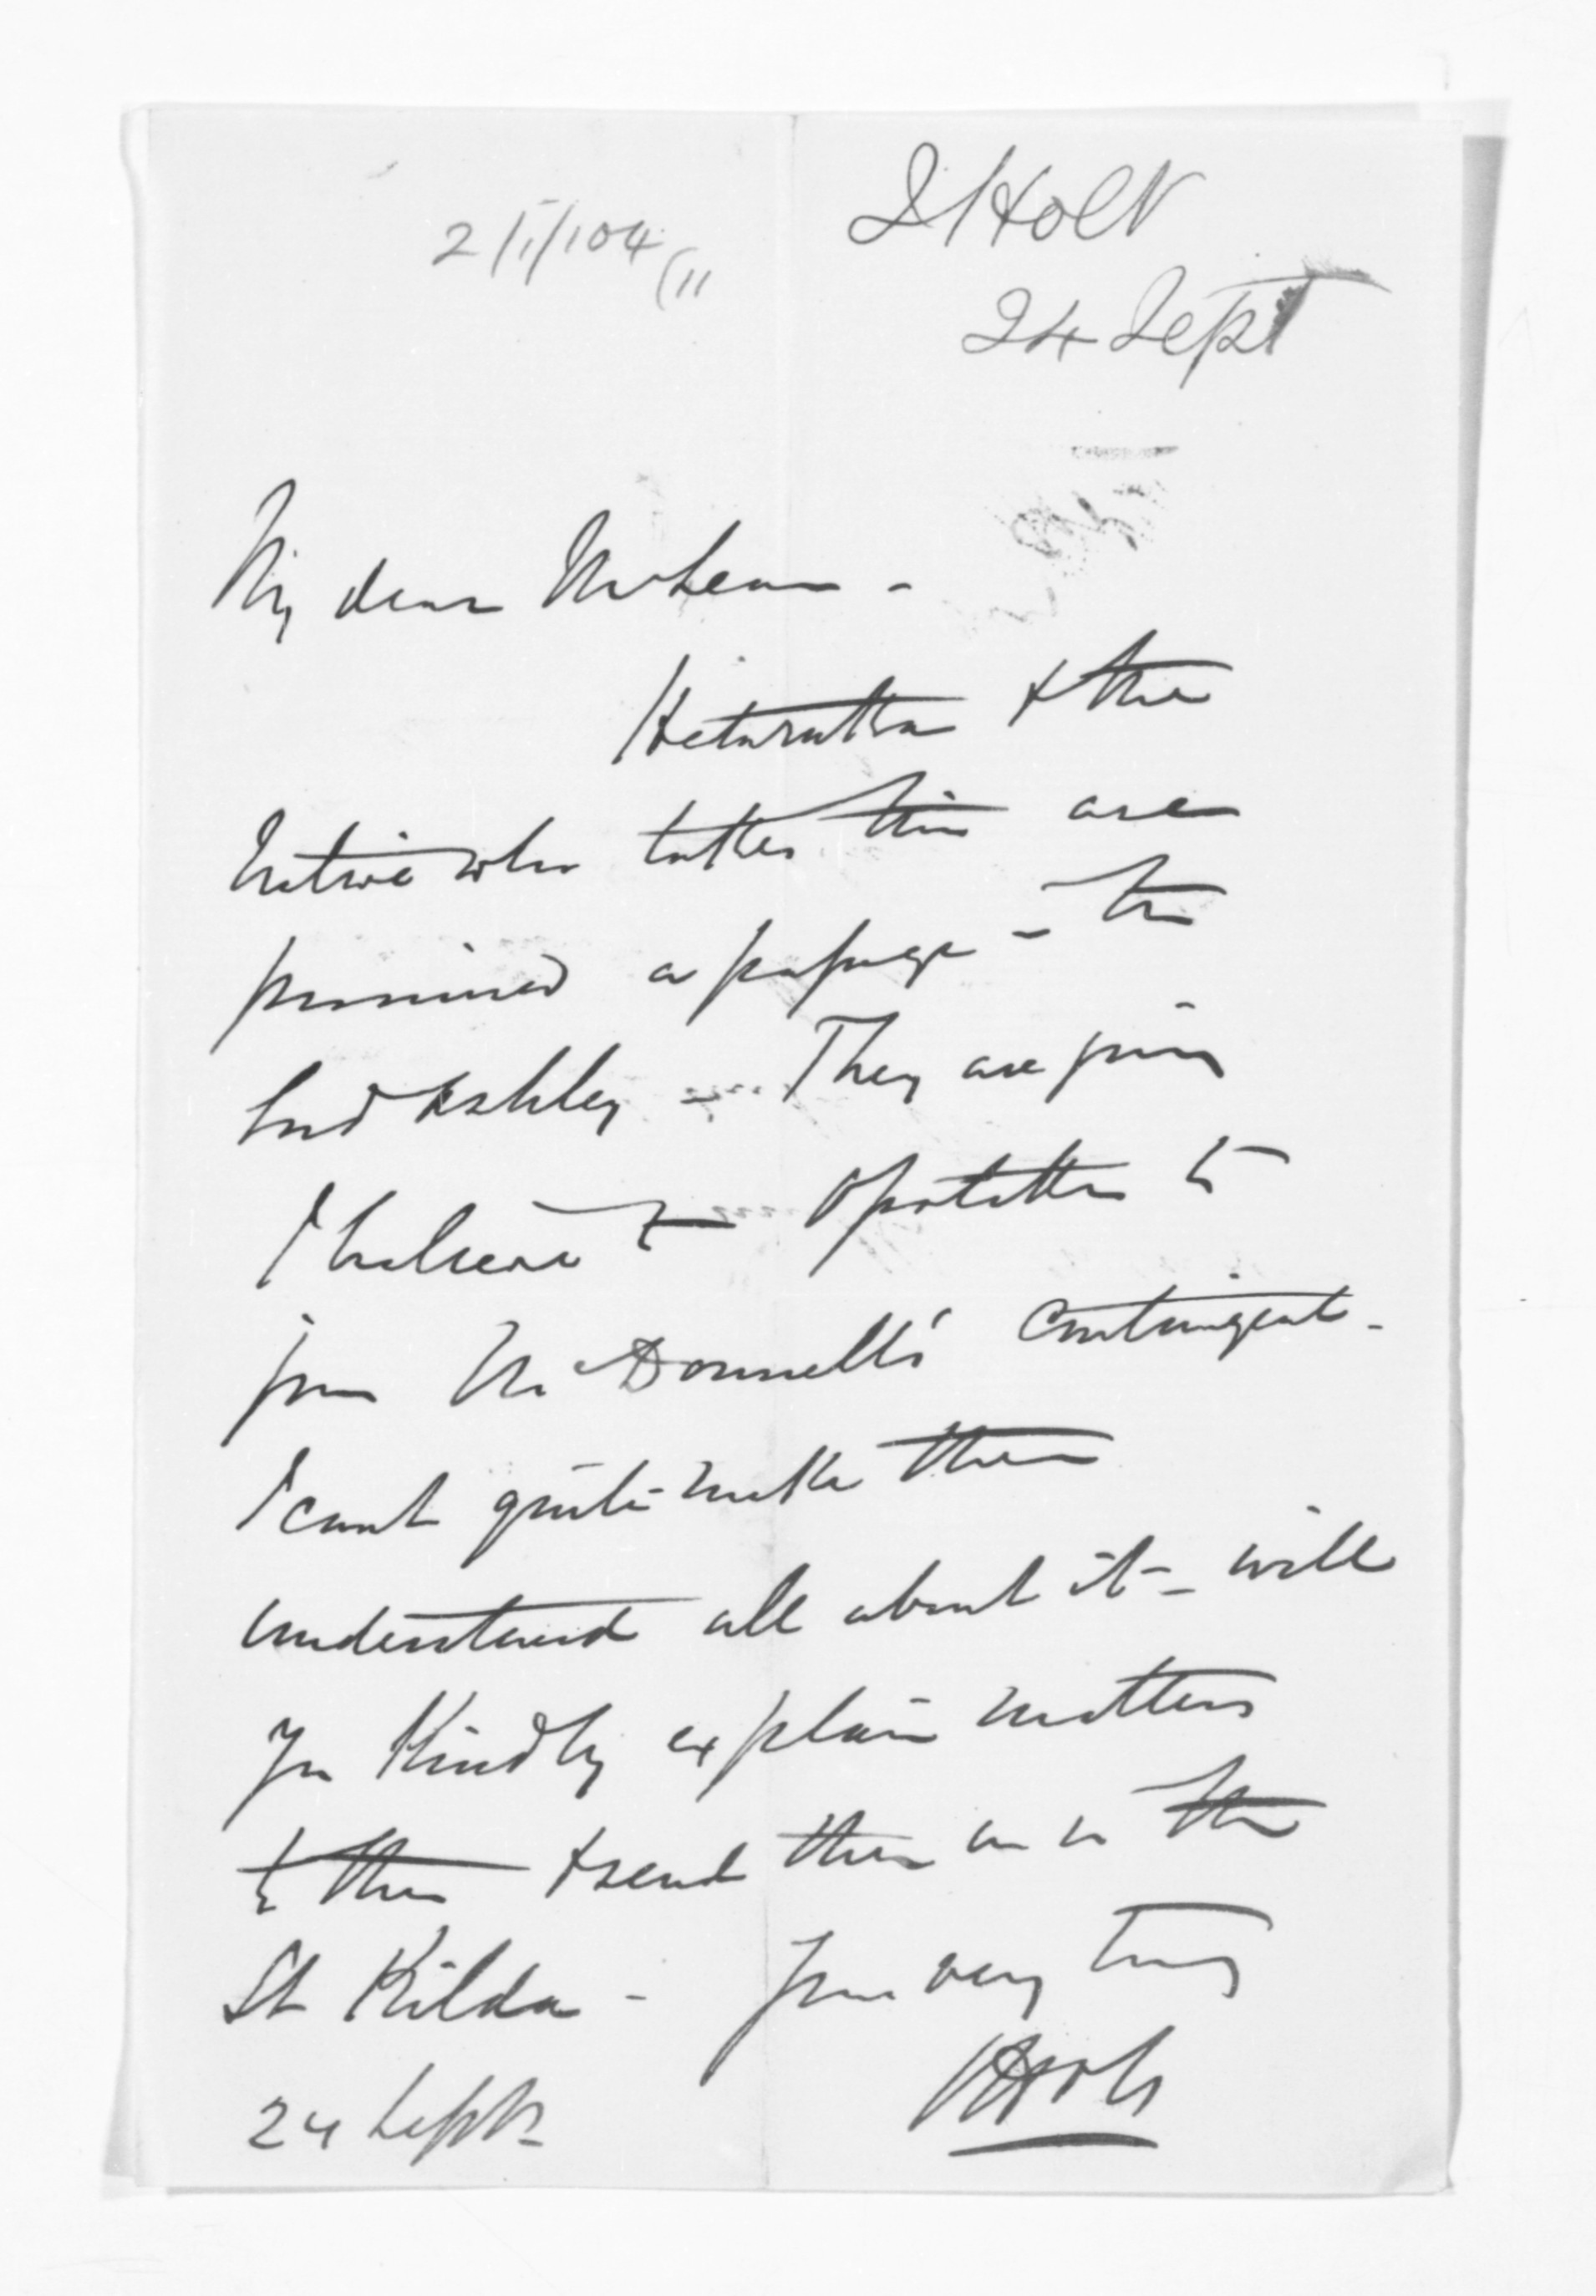 J Holt
2/1/104/11
24 Sept
My dear McLean -
& the
Native who takes this are
promised a passage - the
Lord Ashley - They are going
I believe to Opotiki to
join McDonnell's contingent -
I can't quite make them
understand all about it - will
you kindly explain matters
to them & send them on in the
St Kilda - Yours very truly
24 Sept